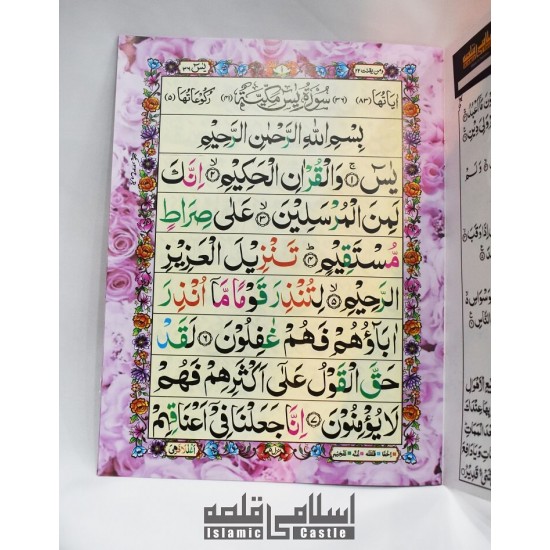 یٰسٓ ٣٦
١
ومن یقنت ٢٢
اٰیَاتُهَا (٨٣) (٣٦) سُوْرَةُ یٰسٓ مَكِّیَّةٌ (٤١) رُكُوْعَاتُهَا (٥)
بِسْمِ اللّٰهِ الرَّحْمٰنِ الرَّحِیْمِ
یٰسٓ ۚ﴿١﴾ وَالْقُرْاٰنِ الْحَكِیْمِ ۙ﴿٢﴾ اِنَّكَ
لَمِنَ الْمُرْسَلِیْنَ ۙ﴿٣﴾ عَلٰی صِرَاطٍ
مُّسْتَقِیْمٍ ؕ﴿٤﴾ تَنْزِیْلَ الْعَزِیْزِ
الرَّحِیْمِ ۙ﴿٥﴾ لِتُنْذِرَ قَوْمًا مَّاۤ اُنْذِرَ
اٰبَآؤُهُمْ فَهُمْ غٰفِلُوْنَ ﴿٦﴾ لَقَدْ
حَقَّ الْقَوْلُ عَلٰۤی اَكْثَرِهِمْ فَهُمْ
لَا یُؤْمِنُوْنَ ﴿٧﴾ اِنَّا جَعَلْنَا فِیْۤ اَعْنَاقِهِمْ
اسلامی قلعہ
Islamic Castle